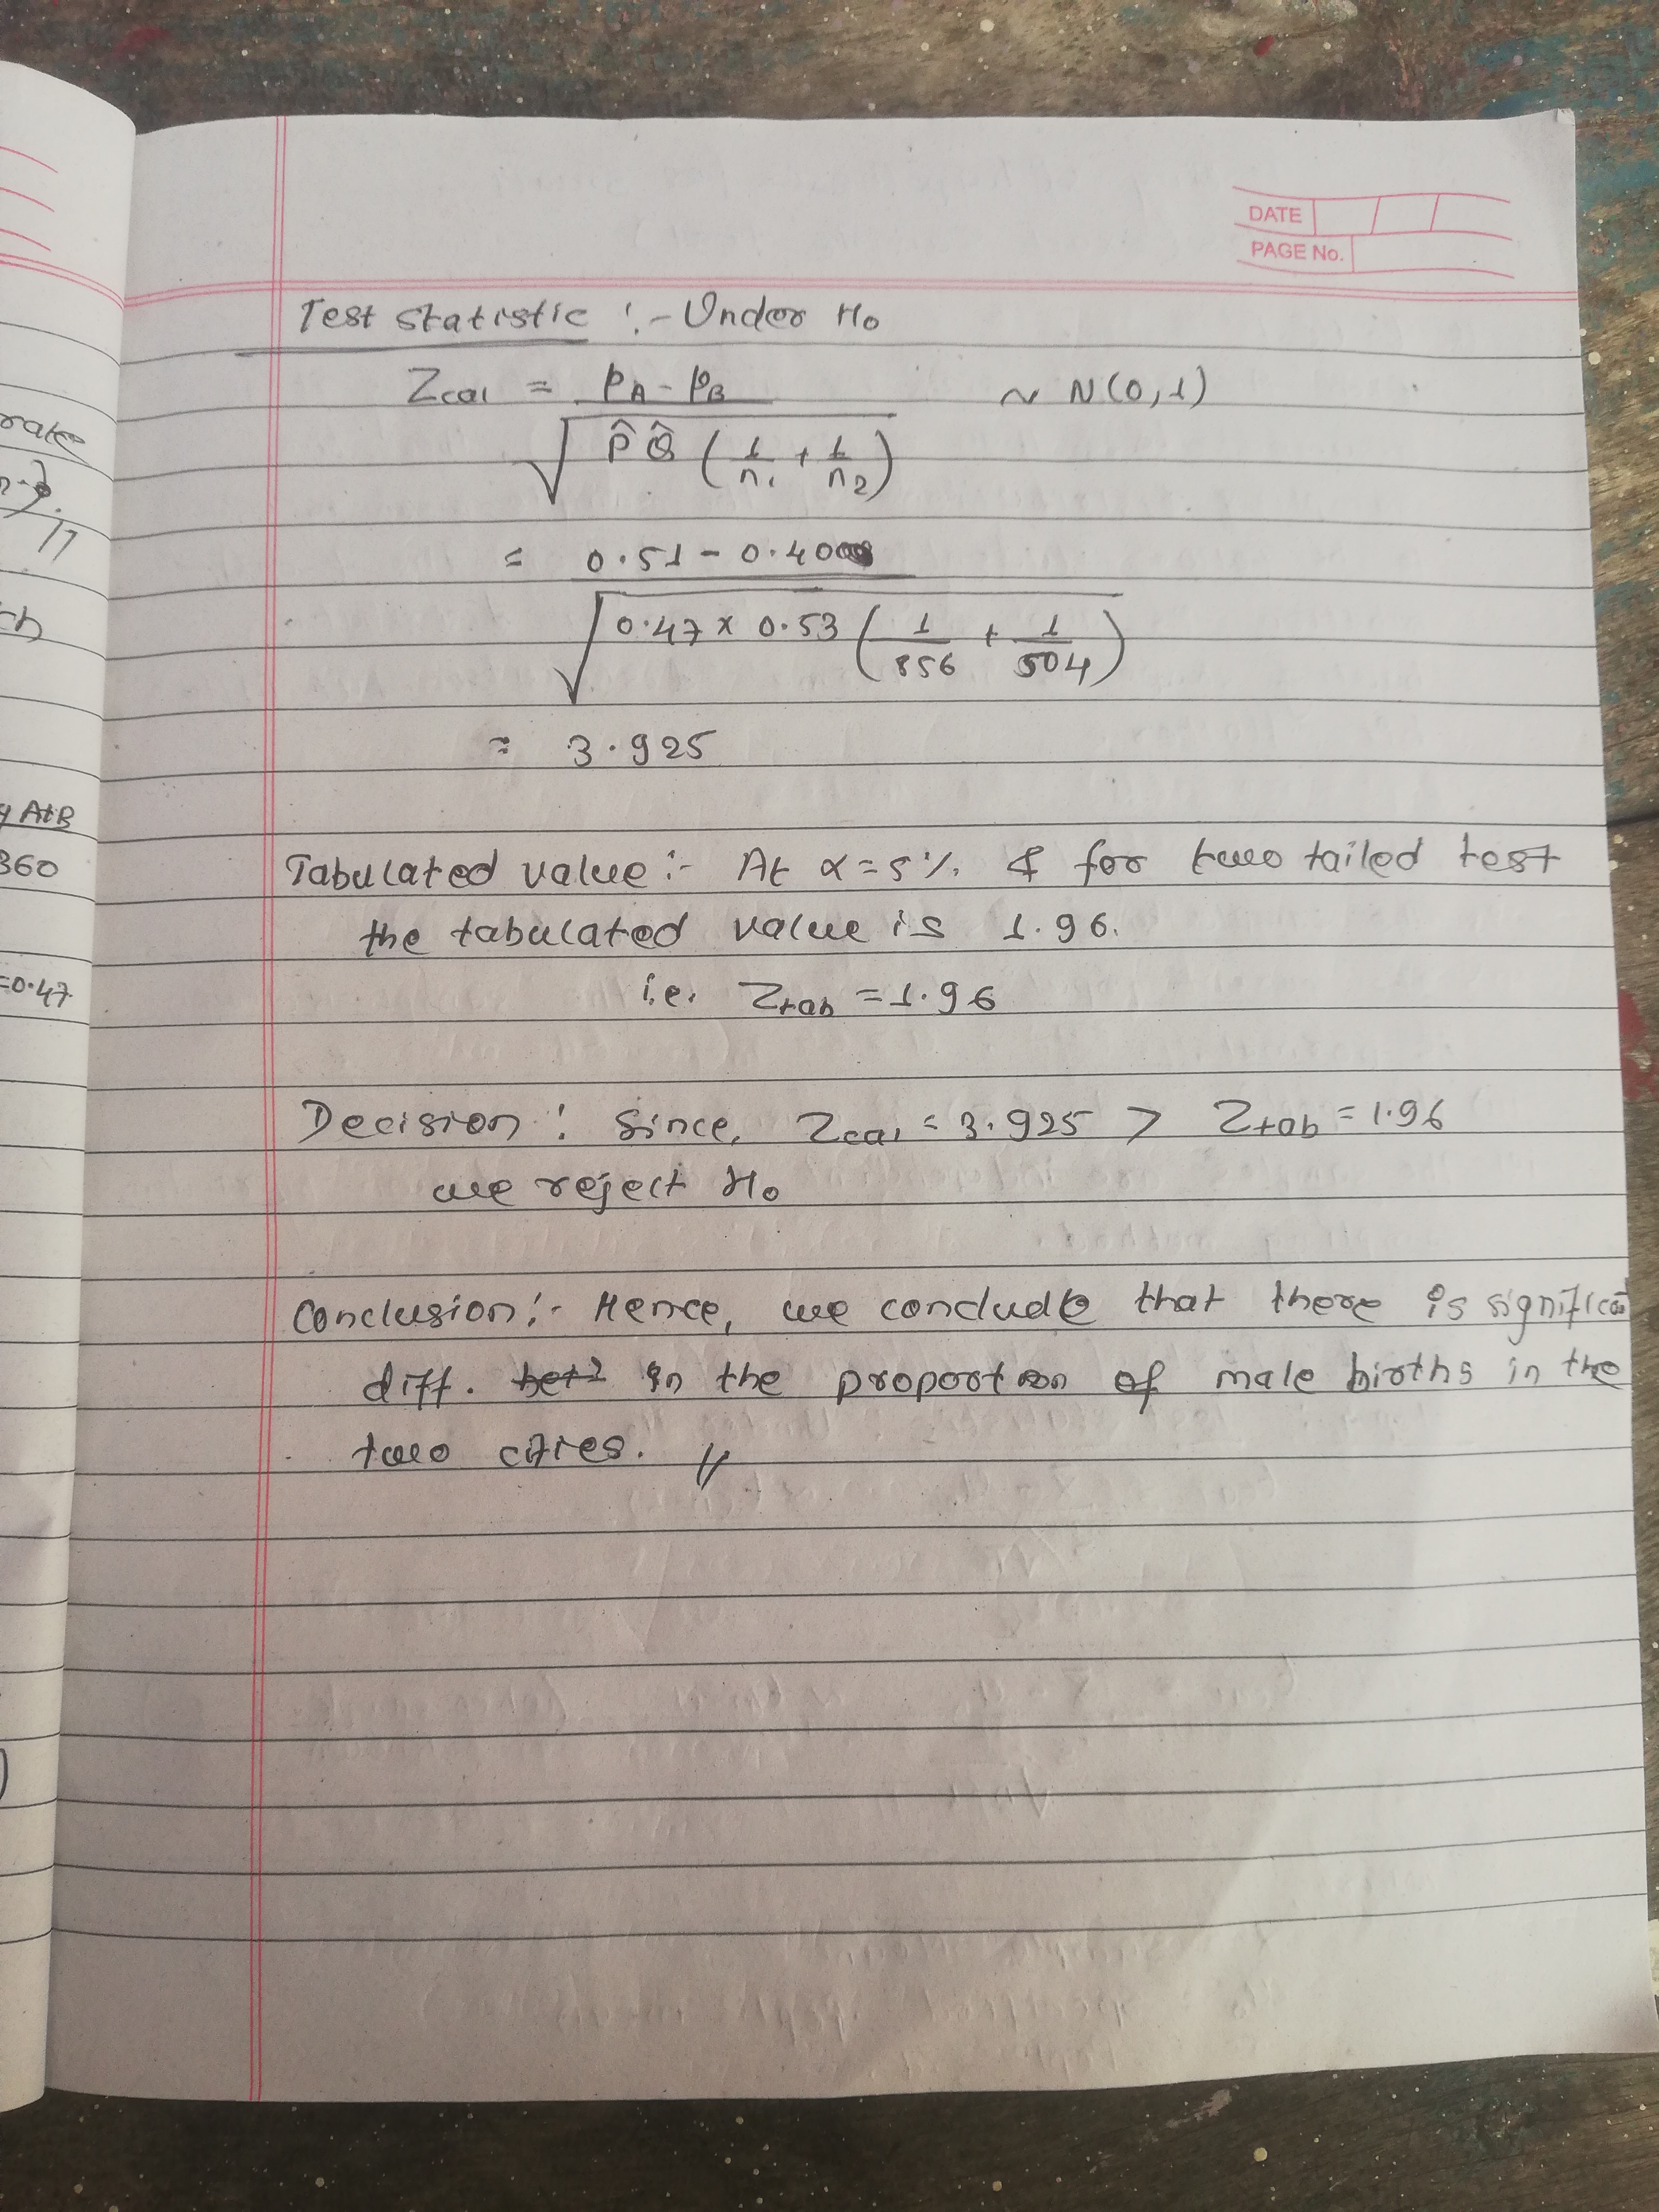 DATE
PAGE No.
Test statistic :- Under H₀
Zcal = pA - pB ~ N(0,1)
√ P̂ Q̂ (1/n₁ + 1/n₂)
= 0.51 - 0.40
√ 0.47 x 0.53 (1/856 + 1/504)
= 3.925
Tabulated value :- At α = 5% & for two tailed test
the tabulated value is 1.96.
i.e. Ztab = 1.96
Decision : Since, Zcal = 3.925 > Ztab = 1.96
we reject H₀
Conclusion :- Hence, we conclude that there is
diff. in the proportion of male births in the
two cities. //
rate
ch
A&B
360
=0.47